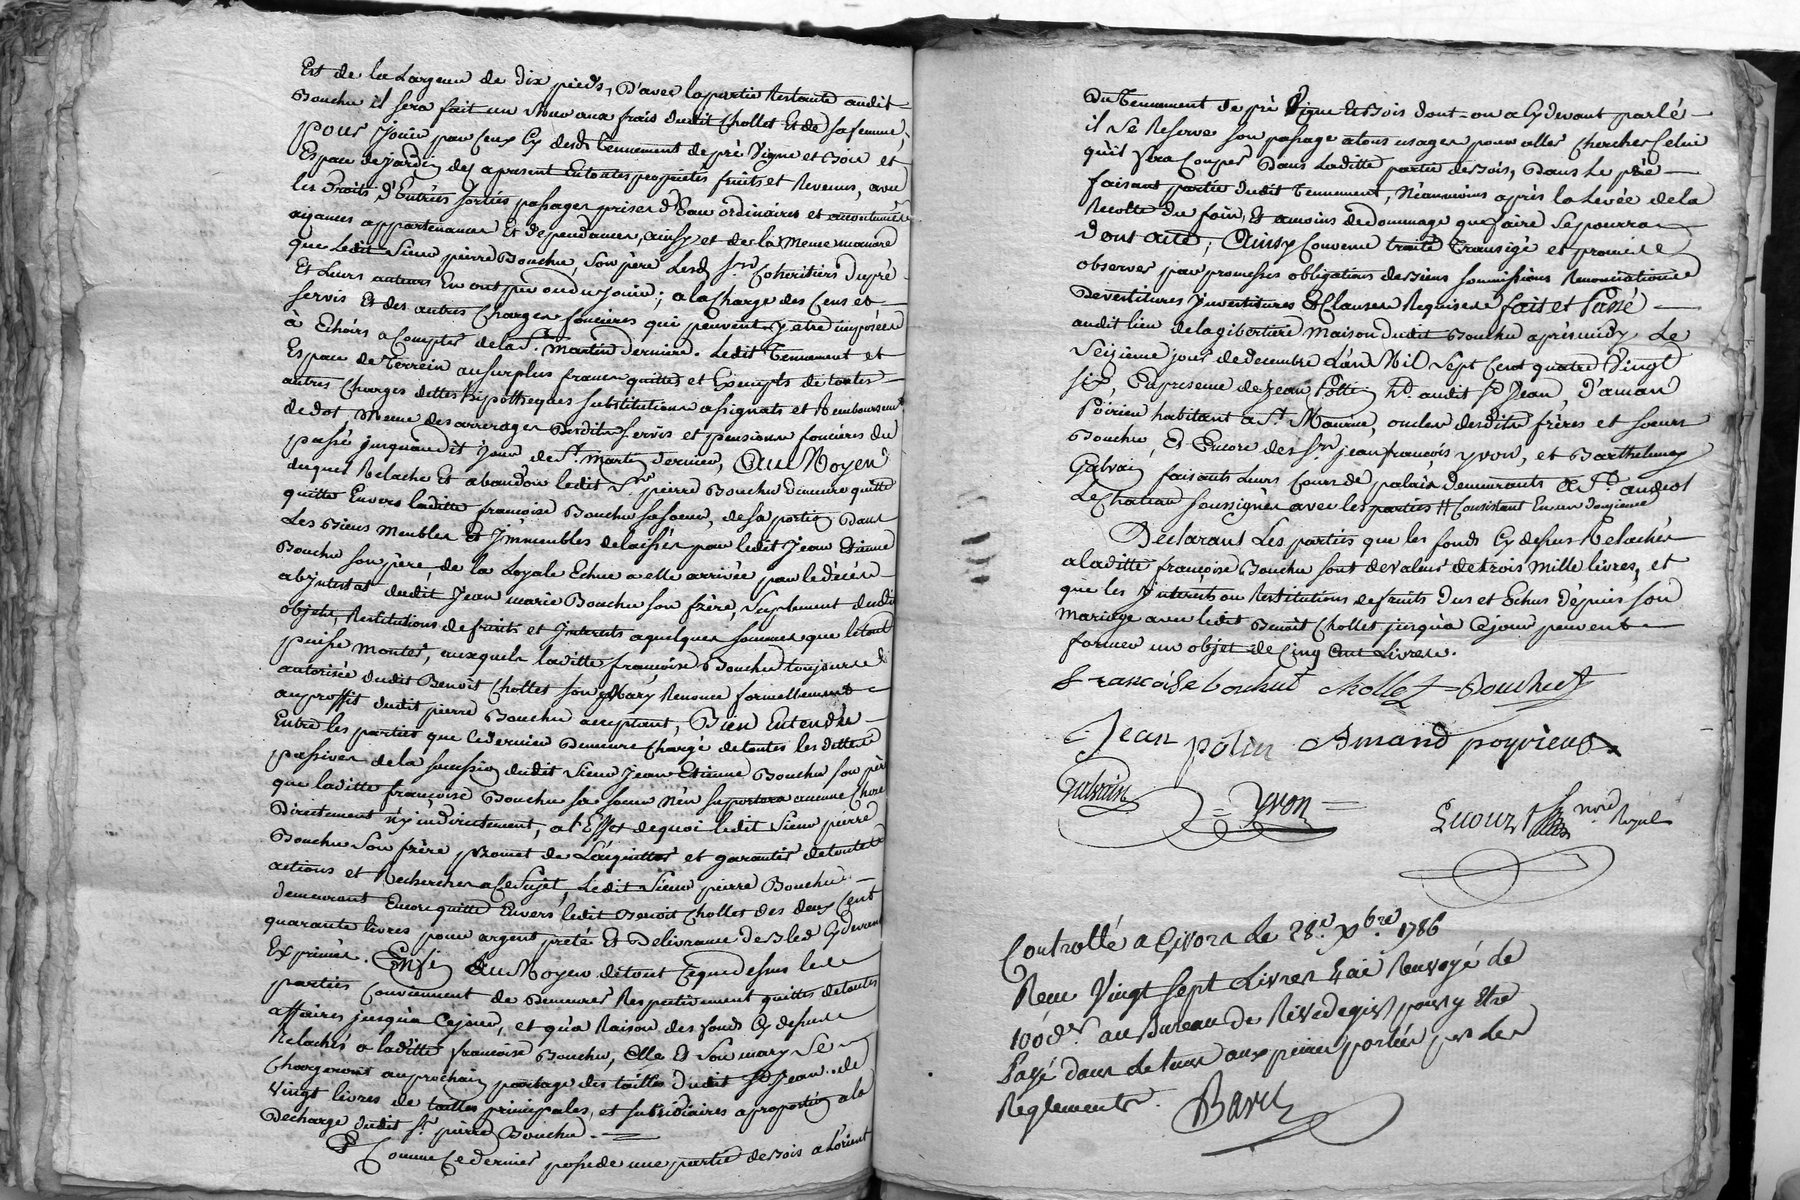 Est de la Largeur de Dix pieds, D'avec la partie Restante audit
Bouchu il sera fait un Mur aux frais dudit Chollet Et de sa femme,
pour Jouir par Ceux Cy desd. Tennement de pré Vigne et Bois et
Espace de Jardin des apresent En toutes proprietés fruits et Revenus, avec
les Droits d'Entrées sorties passages prises d'Eau ordinaires et accoutumés
aizances appartenances Et dependances, ainsy et de la Meme maniere
que Ledit Sieur pierre Bouchu, Son père Lesd. Srs Coheritiers dupré
Et Leurs auteurs En ont peu ou du Jouir; a la charge des Cens et
servis Et des autres Charges foncières qui peuvent y etre imposées
à Echoirs a Compter de la St. Martin derniere. Ledit Tennement et
Espace de Terrein au surplus francs quittes et Exempts de toutes
autres Charges dettes hipotheques substitutions assignats et Remboursemt
de dot, Meme des arrerages Desdits servis et pensions foncières du
passé jusquaudit Jour de St. Martin dernier, Au Moyen
duquel Relache Et abandon ledit Sr. pierre Bouchu demeure quitte
quitte Envers laditte françoise Bouchu sa soeur, de sa portion Dans
Les Biens Meubles Et Immeubles delaissés par ledit Jean Etienne
Bouchu son père de la Loyale Echue a elle arrivée par le décés
abjntestat dudit Jean marie Bouchu son frère, Suplement dudit
objets, Restitutions de fruits et Interets a quelques sommes que le tout
puisse monter, auxquels laditte françoise Bouchu toujours
autorisée dudit Benoît Chollet son Mary Renonce formellement
au proffit dudit pierre Bouchu acceptant, Bien Entendu
Entre les parties que ce dernier Demeure Chargé de toutes les dettes
passives de la succession dudit Sieur Jean Etienne Bouchu son père
que laditte françoise Bouchu sa soeur N'en suportera aucune Chose
Directement n'y indirectement, a l'Effet de quoi ledit Sieur pierre
Bouchu Son frère promet de L'acquitter et garantir de toutes
actions et Recherches a Ce Sujet, Ledit Sieur pierre Bouchu
demeurant Encore quitte Envers ledit Benoit Chollet des deux Cent
quarante livres pour argent preté Et Delivrance de Bled Cydevant
Exprimée. Enfin Au Moyen de tout Ce que dessus les
parties Conviennent de Demeurer Respectivement quittes de toutes
affaires jusqu'a Cejour, et qu'a Raison des fonds Cy dessus
Relachés a laditte françoise Bouchu, Elle Et Son mary Se
Chargeront au prochain partage des tailles Dudit St Jean de
Vingt livres de tailles principales, et subsidiaires a proportion a la
Decharge dudit Sr. pierre Bouchu.
Et Comme Ce dernier possede une partie de Bois a L'orient
Du Tennement de pré Vigne Et Bois dont on a Cydevant parlé
il Se Reserve son passage a tous usages pour aller Chercher Celui
qu'il fera Couper Dans Laditte partie de Bois, Dans Le pré
faisant partie dudit Tennement, Néanmoins après la Levée de la
Recolte du foin, Et a moins de dommage que faire Se pourra
Dont acte; Ainsy Convenu traité Transigé et promis
observer par promesses obligations de Biens soumissions Renonciations
Devestitures Jnvestitures & Clauses Requises fait et Passé
audit lieu de la gibertiere Maison dudit Bouchu après midy Le
Seizieme jour de Decembre L'an Mil Sept Cent quatre Vingt
six, En presence de Jean Pollin hd. audit St Jean, D'amand
Poirieu habitant a St. Maurice, oncles desdits frères et soeurs
Bouchu, Et Encore des Srs jean françois yvon, et Barthelemy
Galvain faisants leurs Cours de palais demeurants a St. andeol
Le Chateau soussignés avec les parties # Consistant En un Douzieme
Declarant Les parties que les fonds Cy dessus Relachés
a laditte françoise Bouchu sont de valeur de trois mille livres, et
que les Jnterets ou Restitutions de fruits Dus et Echus Dépuis son
Mariage avec ledit Benoit Chollet jusqu'a Cejour peuvent
former un objet de Cinq Cent Livres.
francoise bouchut Chollet Bouchut
Jean polin Amand poyrieux
Galvain = yvon =
Guourt nore Royal
Controllé a Givors Le 28e. Xbre. 1786
Reçu Vingt Sept Livres Renvoyé de
100 d.r au Bureau de Rivedegier pour y Etre
Payé dans Le tems aux peines portées par les
Reglements. Baret